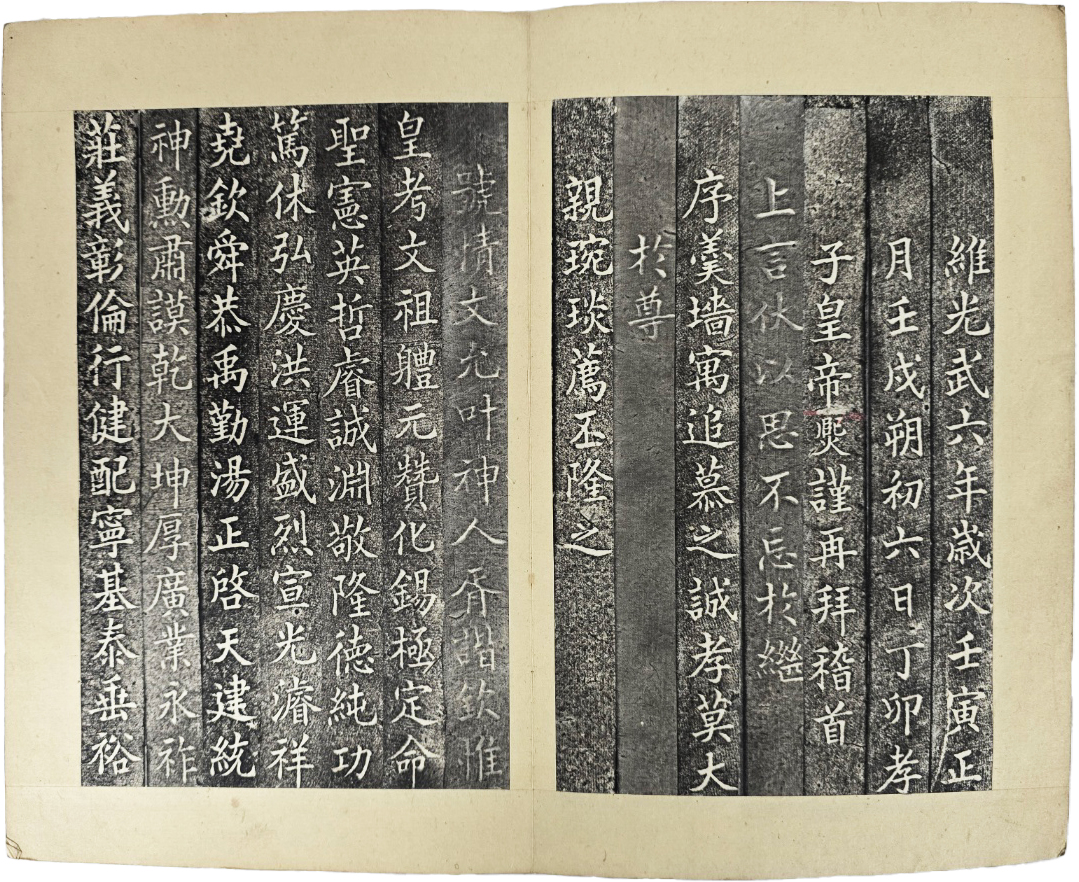 維光武六年歲次壬寅正
月壬戌朔初六日丁卯孝
子皇帝㷩謹再拜稽首
上言伏以思不忘於繼
序羹墻寓追慕之誠孝莫大
於尊
親琬琰薦丕隆之
號情文允叶神人胥諧欽惟
皇考文祖體元贊化錫極定命
聖憲英哲睿誠淵敬隆德純功
篤休弘慶洪運盛烈宣光濬祥
堯欽舜恭禹勤湯正啓天建統
神勳肅謨乾大坤厚廣業永祚
莊義彰倫行健配寧基泰垂裕